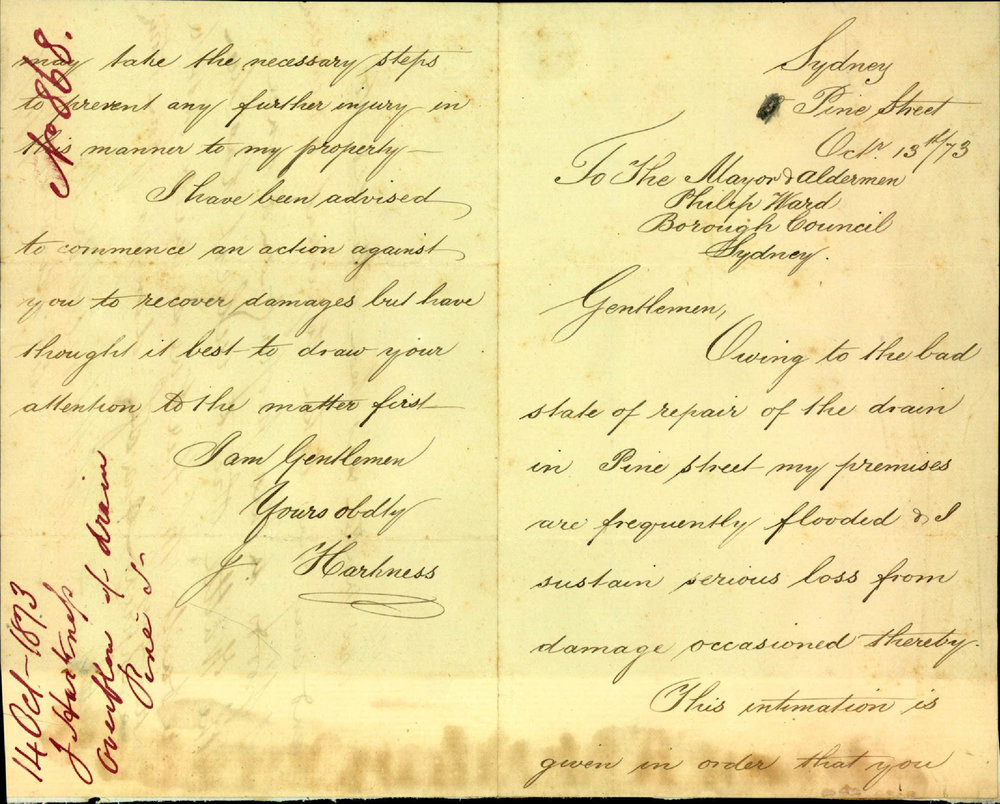 Sydney
Pine Street
Octr. 13th/73
To The Mayor & Aldermen
Philip Ward
Borough Council
Sydney.
Gentlemen,
Owing to the bad
state of repair of the drain
in Pine street my premises
are frequently flooded & I
sustain serious loss from
damage occasioned thereby.
This intimation is
given in order that you
may take the necessary steps
to prevent any further injury in
this manner to my property
I have been advised
to commence an action against
you to recover damages but have
thought it best to draw your
attention to the matter first
I am Gentlemen
Yours obdtly
J. Harkness
No 868.
14 Oct - 1873
J Harkness
Overflow of drain
Pine St